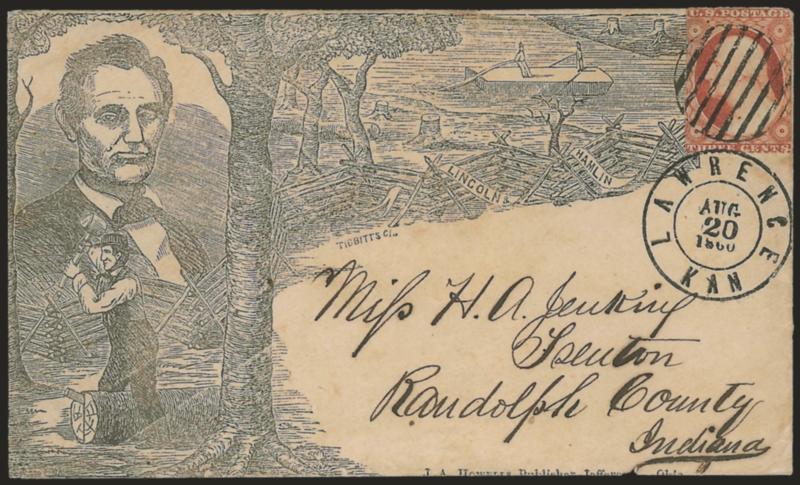 U.S. POSTAGE
THREE CENTS.
LAWRENCE
AUG.
20
1860
KAN
LINCOLN &
HAMLIN
TIBBITTS
Miss H. A. Jenkins
Trenton
Randolph County
Indiana
J. A. HOWELLS Publisher Ohio